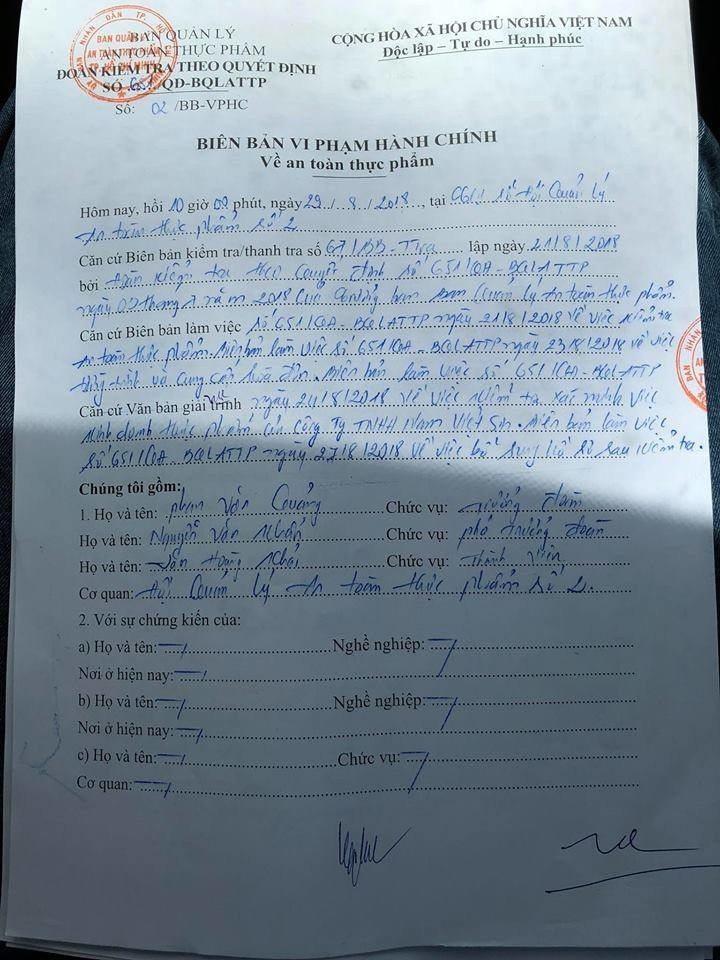 BAN QUẢN LÝ
AN TOÀN THỰC PHẨM
ĐOÀN KIỂM TRA THEO QUYẾT ĐỊNH
SỐ 651/QĐ-BQLATTP
Số: 02 /BB-VPHC
CỘNG HÒA XÃ HỘI CHỦ NGHĨA VIỆT NAM
Độc lập – Tự do – Hạnh phúc
BIÊN BẢN VI PHẠM HÀNH CHÍNH
Về an toàn thực phẩm
Hôm nay, hồi 10 giờ 09 phút, ngày 29 / 8 / 2018, tại số Đội Quản lý
An toàn thực phẩm số 2
Căn cứ Biên bản kiểm tra/thanh tra số 67/BB- lập ngày 21/8/2018
bởi Đoàn kiểm tra theo Quyết định số 651/QĐ-BQLATTP
ngày tháng năm 2018 của Trưởng ban Ban Quản lý An toàn thực phẩm.
Căn cứ Biên bản làm việc số 651/QĐ-BQLATTP ngày 21/8/2018 về việc kiểm tra
An toàn thực phẩm. Biên bản làm việc số 651/QĐ-BQLATTP ngày 23/8/2018 về việc
và cung cấp hóa đơn. Biên bản làm việc số 651/QĐ-BQLATTP
Căn cứ Văn bản giải trình ngày 24/8/2018 về việc kiểm tra xác minh việc
kinh doanh thực phẩm của Công Ty TNHH Nam Việt Sin. Biên bản làm việc
số 651/QĐ-BQLATTP ngày 27/8/2018 về việc bổ sung hồ sơ sau kiểm tra.
Chúng tôi gồm:
1. Họ và tên: Phạm Văn Quảng Chức vụ: Trưởng đoàn
Họ và tên: Nguyễn Văn Nhân Chức vụ: phó trưởng đoàn
Họ và tên: Hoàng Chức vụ: Thành viên
Cơ quan: Đội Quản lý An toàn thực phẩm số 2.
2. Với sự chứng kiến của:
a) Họ và tên: Nghề nghiệp:
Nơi ở hiện nay:
b) Họ và tên: Nghề nghiệp:
Nơi ở hiện nay:
c) Họ và tên: Chức vụ:
Cơ quan: